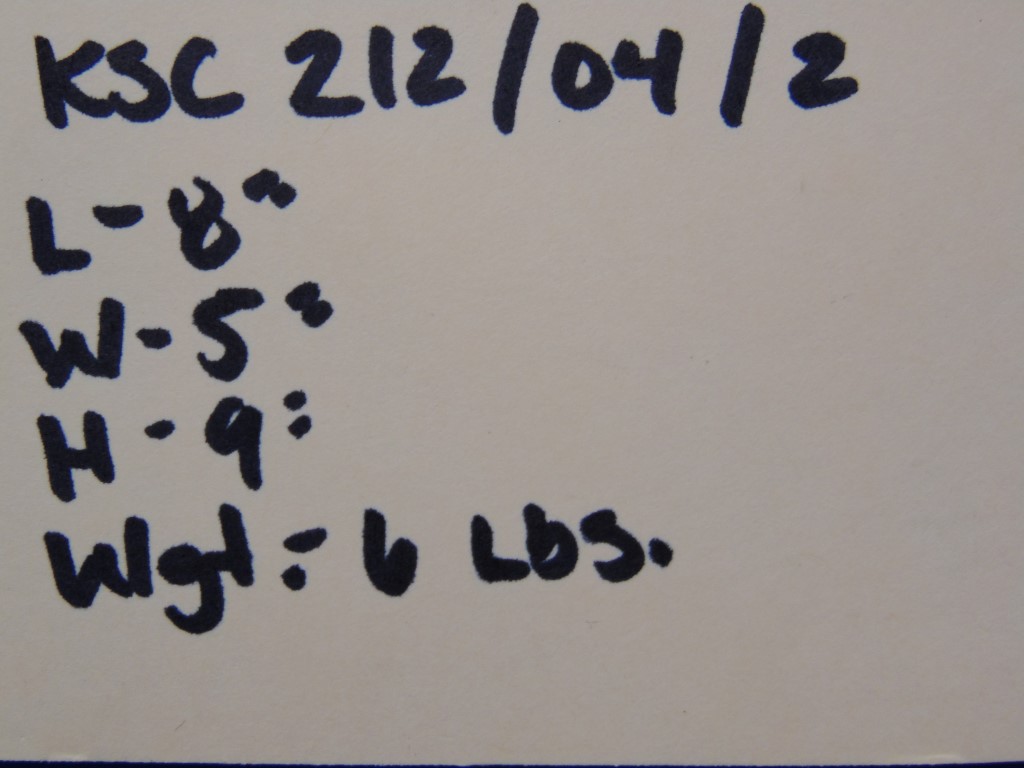 KSC 212/04/2
L- 8"
W- 5"
H - 9"
Wgt: 6 Lbs.